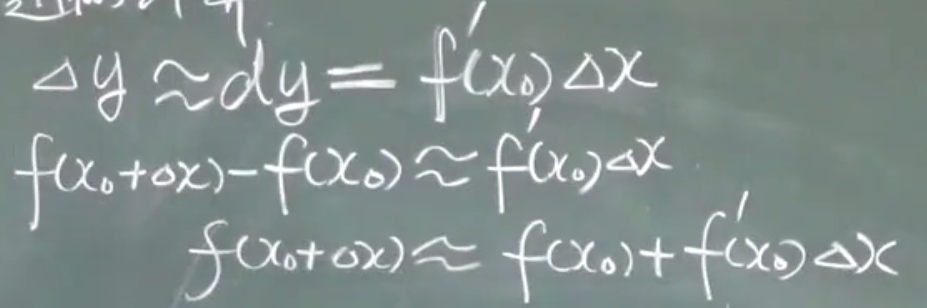 Δy≈dy=f'(x₀)Δx
f(x₀+Δx)-f(x₀)≈f'(x₀)Δx
f(x₀+Δx)≈f(x₀)+f'(x₀)Δx